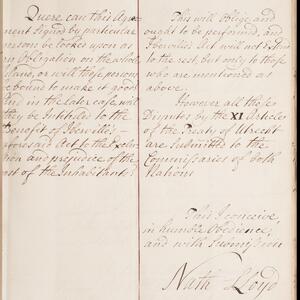 Quere, can this Agree
ment Signed by particular
persons be looked upon as
an Obligation on the whole
Island, or will those persons
be bound to make it good
And in the later case will
they be Intituled to the
Benefit of Iberville's
aforesaid Act to the Exclu
sion and prejudice of the
rest of the Inhabitants?
This will oblige and
ought to be performed, and
Iberville's Act will not
to the rest, but only to those
who are mentioned as
above.
However all those
Disputes by the XI Article
of the Treaty of Utrecht
are Submitted to the
Commissaries of both
Nations
This I conceive,
in humble Obedience,
and with Submission
Nath Lloyd